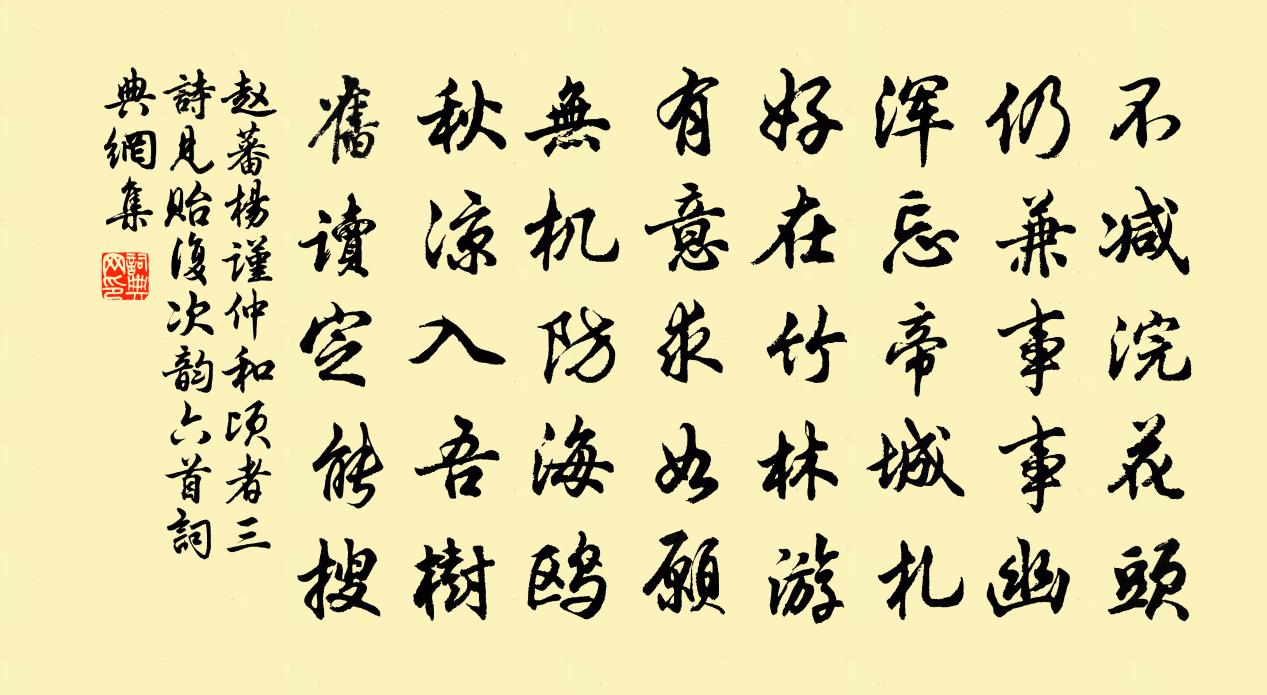 不减浣花頭
仍兼事事幽
浑忘帝城札
好在竹林游
有意求如願
無机防海鸥
秋凉入吾樹
舊讀定能搜
赵蕃楊谨仲和頃者三
詩見貽復次韵六首詞
典網集
詞典網印